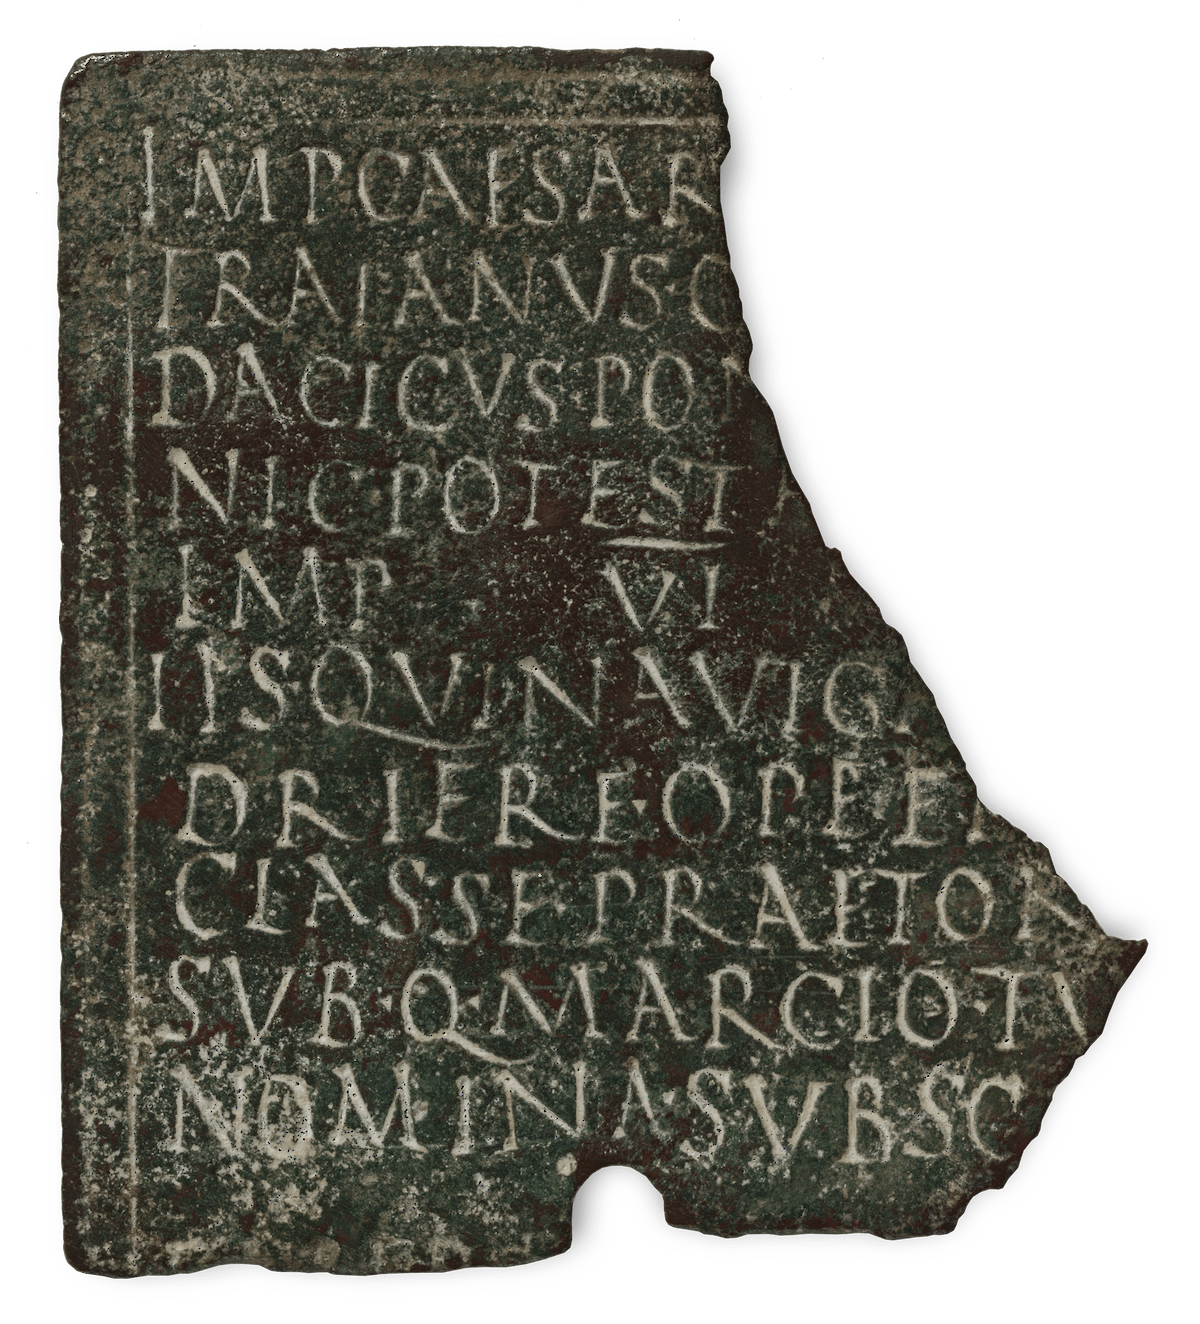 IMPCAESAR
TRAIANVS·
DACICVS·PON
NICPOTEST
IMP VI
IIS·QVINAVIG
DRIERE·OPEEI
CLASSEPRAETOR
SVB·Q·MARCIO·TV
NOMINA·SVBSC